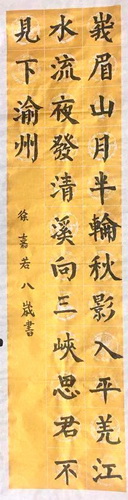 峩眉山月半輪秋影入平羌江
水流夜發清溪向三峽思君不
見下渝州
徐嘉若八歲書